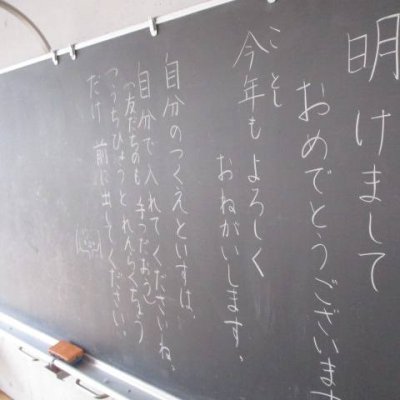 明けまして
おめでとうございます
ことし
今年もよろしく
おねがいします。
自分のつくえといすは、
自分で入れてくださいね。
(友だちのも 手つだおう)
つうちひょうとれんらくちょう
だけ 前に出してください。